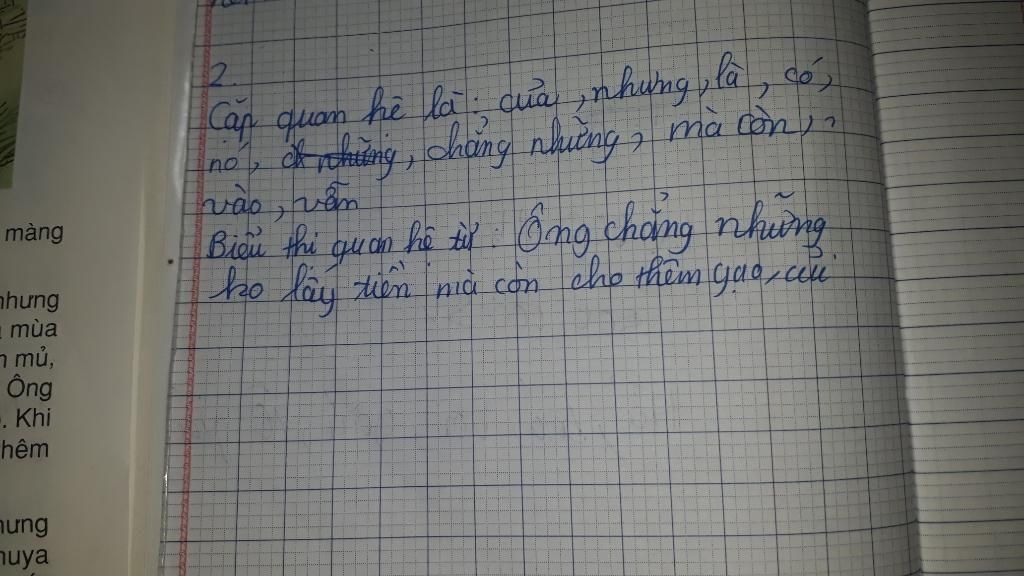 màng
nhưng
mùa
mủ,
Ông
. Khi
thêm
2.
Cặp quan hê là : của, nhưng, là, có,
nó, chẳng những, mà còn,
vào, vẫn
Biểu thi quan hê từ : Ông chẳng những
ko lấy tiền mà còn cho thêm gạo, củi